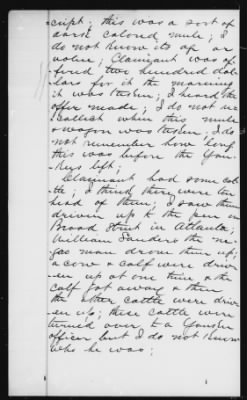 cript; this was a sort of
dark colored mule; I
do not know its age or
value; Claimant was of-
fered two hundred dol-
lars for it the morning
it was taken; I heard the
offer made; I do not re-
collect when this mule
& wagon was taken; I do
not remember how long
this was before the Yan-
kees left;
Claimant had some cat-
tle; I think there were ten
head of them; I saw them
driven up to the pen on
Broad Street in Atlanta;
William Sanders the ne-
gro man drove them up;
a cow & calf were driv-
en up at one time & the
calf got away & then
the other cattle were driv-
en up; these cattle were
turned over to a Yankee
officer but I do not know
who he was;